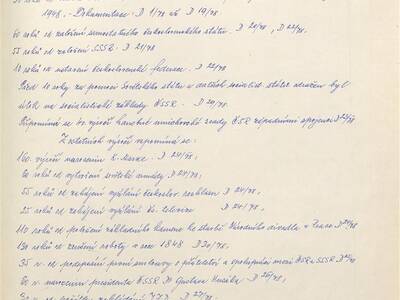 1948. - Dokumentace. D 1/78 až D 19/78
60 roků od založení samostatného československého státu. D 20/78, D 22/78
55 roků od založení SSSR. D 21/78
10 roků od ustavení československé federace. D 22/78
Před 10 roky za pomoci Sovětského svazu a ostatních socialist. států odražen byl
útok na socialistické základy ČSSR. D 20/78
Připomíná se 40. výročí hanebné mnichovské zrady ČSR západními spojenci D 23/78
Z ostatních výročí vzpomíná se:
160. výročí narození K. Marxe. D 24/78;
60 roků od vytvoření sovětské armády. D 24/78;
55 roků od zahájení vysílání českoslov. rozhlasu D 24/78,
25 roků od zahájení vysílání čs. televize D 24/78
110 roků od položení základního kamene ke stavbě Národního divadla v Praze D
130 roků od zrušení roboty v roce 1848 D 24/78;
35 v. od podepsání první smlouvy o přátelství a spolupráci mezi ČSR a SSSR D
narozenin presidenta ČSSR Dr. Gustava Husáka. D